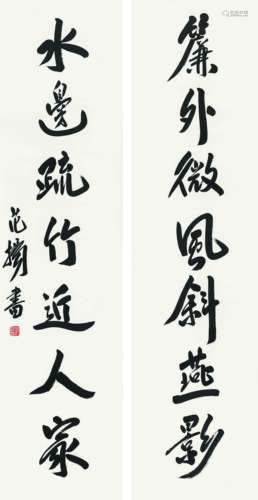 簾外微風斜燕影
水邊疏竹近人家
范擣書